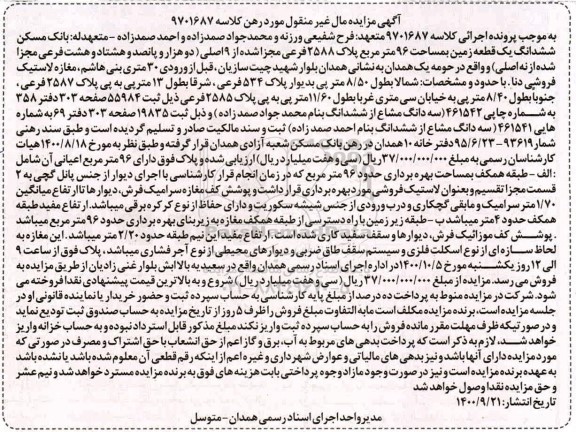 آگهی مزایده مال غیر منقول مورد رهن کلاسه ۹۷۰۱۶۸۷
به موجب پرونده اجرائی کلاسه ۹۷۰۱۶۸۷ متعهد: فرح شفیعی ورزنه و محمد جواد صمدزاده و احمد صمدزاده - متعهدله: بانک مسکن
ششدانگ یک قطعه زمین بمساحت ۹۶ متر مربع پلاک ۲۵۸۸ فرعی مجزا شده از ۹ اصلی (دو هزار و پانصد و هشتاد و هشت فرعی مجزا
شده از نه اصلی) و واقع در حومه یک همدان به نشانی همدان بلوار شهید چیت سازیان، قبل از ورودی ۳۰ متری بنی هاشم، مغازه لاستیک
فروشی دنا. با حدود و مشخصات: شمالا بطول ۸/۵۰ متر پی بدیوار پلاک ۵۳۴ فرعی، شرقا بطول ۱۳ متر پی به پی پلاک ۲۵۸۷ فرعی،
جنوبا بطول ۸/۴۰ متر پی به خیابان سی متری غربا بطول ۱۱/۶۰ متر پی به پی پلاک ۲۵۸۵ فرعی ذیل ثبت ۵۵۹۸۴ صفحه ۳۰۳ دفتر ۳۵۸
به شماره چاپی ۴۶۱۵۴۲ (سه دانگ مشاع از ششدانگ بنام محمد جواد صمدزاده) و ذیل ثبت ۱۹۸۳۵ صفحه ۳۰۳ دفتر ۶۹ به شماره
هایی ۴۶۱۵۴۱ (سه دانگ مشاع از ششدانگ بنام احمد صمدزاده) ثبت و سند مالکیت صادر و تسلیم گردیده است و طبق سند رهنی
شماره ۹۳۶۱۹-۹۵/۶/۲۳ دفتر خانه ۱۰ همدان در رهن بانک مسکن شعبه آزادی همدان قرار گرفته و طبق نظریه مورخ ۱۴۰۰/۸/۱۸ هیات
کارشناسان رسمی به مبلغ ۳۷/۰۰۰/۰۰۰/۰۰۰ ریال (سی و هفت میلیارد ریال) ارزیابی شده و پلاک فوق دارای ۹۶ متر مربع اعیانی آن شامل
: الف - طبقه همکف بمساحت بهره برداری حدود ۹۶ متر مربع که در زمان انجام قرار کارشناسی با اجرای دیوار از جنس پانل گچی به ۲
قسمت مجزا تقسیم و بعنوان لاستیک فروشی مورد بهره برداری قرار داشت و پوشش کف مغازه سرامیک فرش، دیوارها تا ارتفاع میانگین
۱/۷۰ متر سرامیک و مابقی گچکاری و درب ورودی از جنس شیشه سکوریت و دارای حفاظ از نوع کرکره برقی میباشد. ارتفاع مفید طبقه
همکف حدود ۴ متر میباشد ب - طبقه زیر زمین با راه دسترسی از طبقه همکف مغازه به زیر بنای بهره برداری حدود ۹۶ متر مربع میباشد
. پوشش کف موزائیک فرش، دیوارها و سقف سفید کاری شده است. ارتفاع مفید این نیم طبقه حدود ۲/۲۰ متر میباشد. این مغازه به
لحاظ سازه ای از نوع اسکلت فلزی و سیستم سقف طاق ضربی و دیوارهای محیطی از نوع آجر فشاری میباشد، پلاک فوق از ساعت ۹
الی ۱۲ روز یکشنبه مورخ ۱۴۰۰/۱۰/۵ در اداره اجرای اسناد رسمی همدان واقع در سعیدیه بالا نبش بلوار غنی زادیان از طریق مزایده به
فروش می رسد. مزایده از مبلغ ۳۷/۰۰۰/۰۰۰/۰۰۰ ریال (سی و هفت میلیارد ریال) شروع و به بالاترین قیمت پیشنهادی نقدا فروخته می
شود. شرکت در مزایده منوط به پرداخت ده درصد از مبلغ پایه کارشناسی به حساب سپرده ثبت و حضور خریدار یا نماینده قانونی او در
جلسه مزایده است، برنده مزایده مکلف است مابه التفاوت مبلغ فروش را ظرف ۵ روز از تاریخ مزایده به حساب صندوق ثبت تودیع نماید
و در صورتیکه ظرف مهلت مقرر مانده فروش را به حساب سپرده ثبت واریز نکند مبلغ مذکور قابل استرداد نبوده و به حساب خزانه واریز
خواهد شد، لازم به ذکر است که پرداخت بدهی های مربوط به آب، برق و گاز اعم از حق انشعاب یا حق اشتراک و مصرف در صورتی که
مورد مزایده دارای آنها باشد و نیز بدهی های مالیاتی و عوارض شهرداری و غیره اعم از اینکه رقم قطعی آن معلوم شده باشد یا نشده باشد
به عهده برنده مزایده است و نیز در صورت وجود مازاد وجوه پرداختی بابت هزینه های فوق به برنده مزایده مسترد خواهد شد و نیم عشر
و حق مزایده نقدا وصول خواهد شد
تاریخ انتشار: ۱۴۰۰/۹/۲۱
مدیر واحد اجرای اسناد رسمی همدان - متوسل